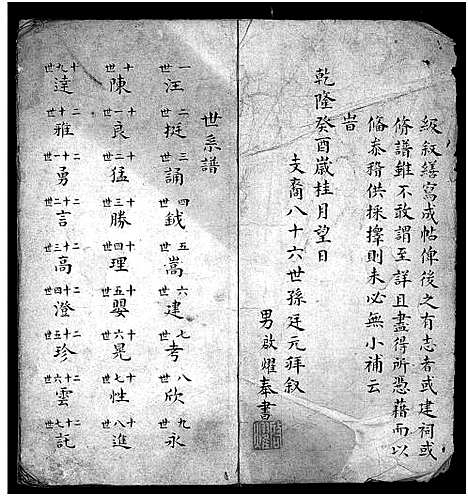 級叙繕寫成帖俾後之有志者或建祠或
修譜雖不敢謂至詳且盡得所憑藉而以
備叅稽供採擇則未必無小補云
旹
乾隆癸酉歲桂月望日
支裔八十六世孫廷元拜叙
男啟燿奉書
世系譜
一世汪 二世挺 三世誦 四世鉞 五世嵩 六世建 七世考 八世欣 九世永
十世陳 十一世良 十二世猛 十三世勝 十四世理 十五世嬰 十六世晃 十七世性 十八世進
十九世達 二十世雅 二十一世勇 二十二世言 二十三世高 二十四世澄 二十五世珍 二十六世雲 二十七世託